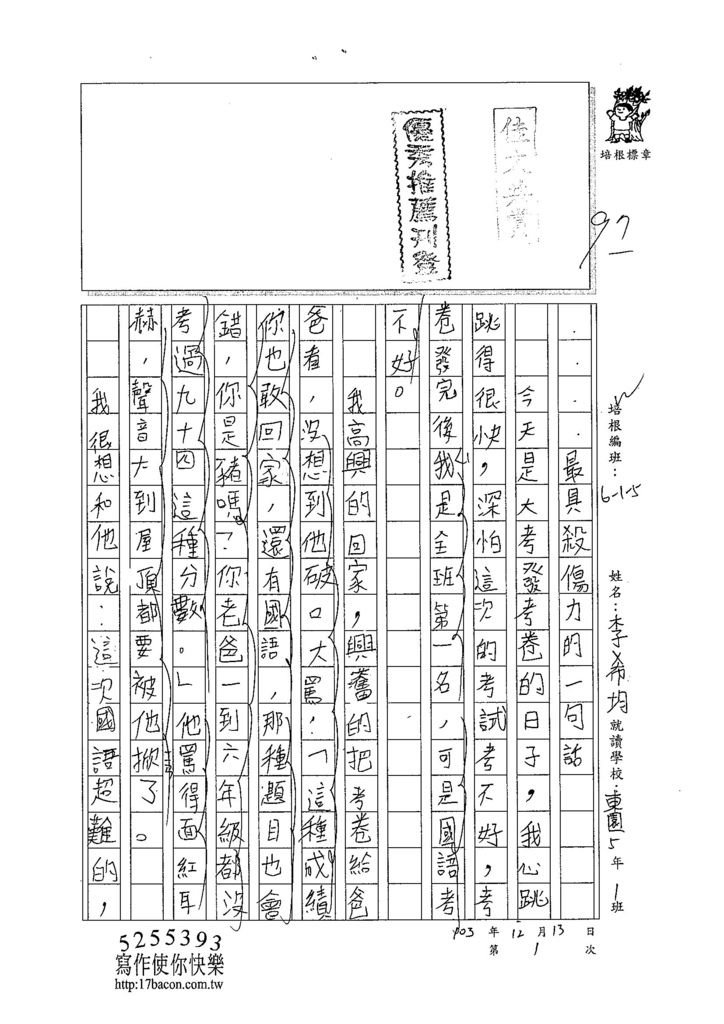 優秀推薦刊登
佳文共賞
培根標章
97
培根編班:6-1-5
姓名:李希均
就讀學校:東園5年1班
103年12月13日
第1次
最具殺傷力的一句話
今天是大考發考卷的日子,我心跳
跳得很快,深怕這次的考試考不好,考
卷發完後我是全班第一名,可是國語考
不好。
我高興的回家,興奮的把考卷給爸
爸看,沒想到他破口大罵:「這種成績
你也敢回家,還有國語,那種題目也會
錯,你是豬嗎?你老爸一到六年級都沒
考過九十四這種分數。」他罵得面紅耳
赫,聲音大到屋頂都要被他掀了。
我很想和他說:這次國語超難的,
5255393
寫作使你快樂
http:17bacon.com.tw